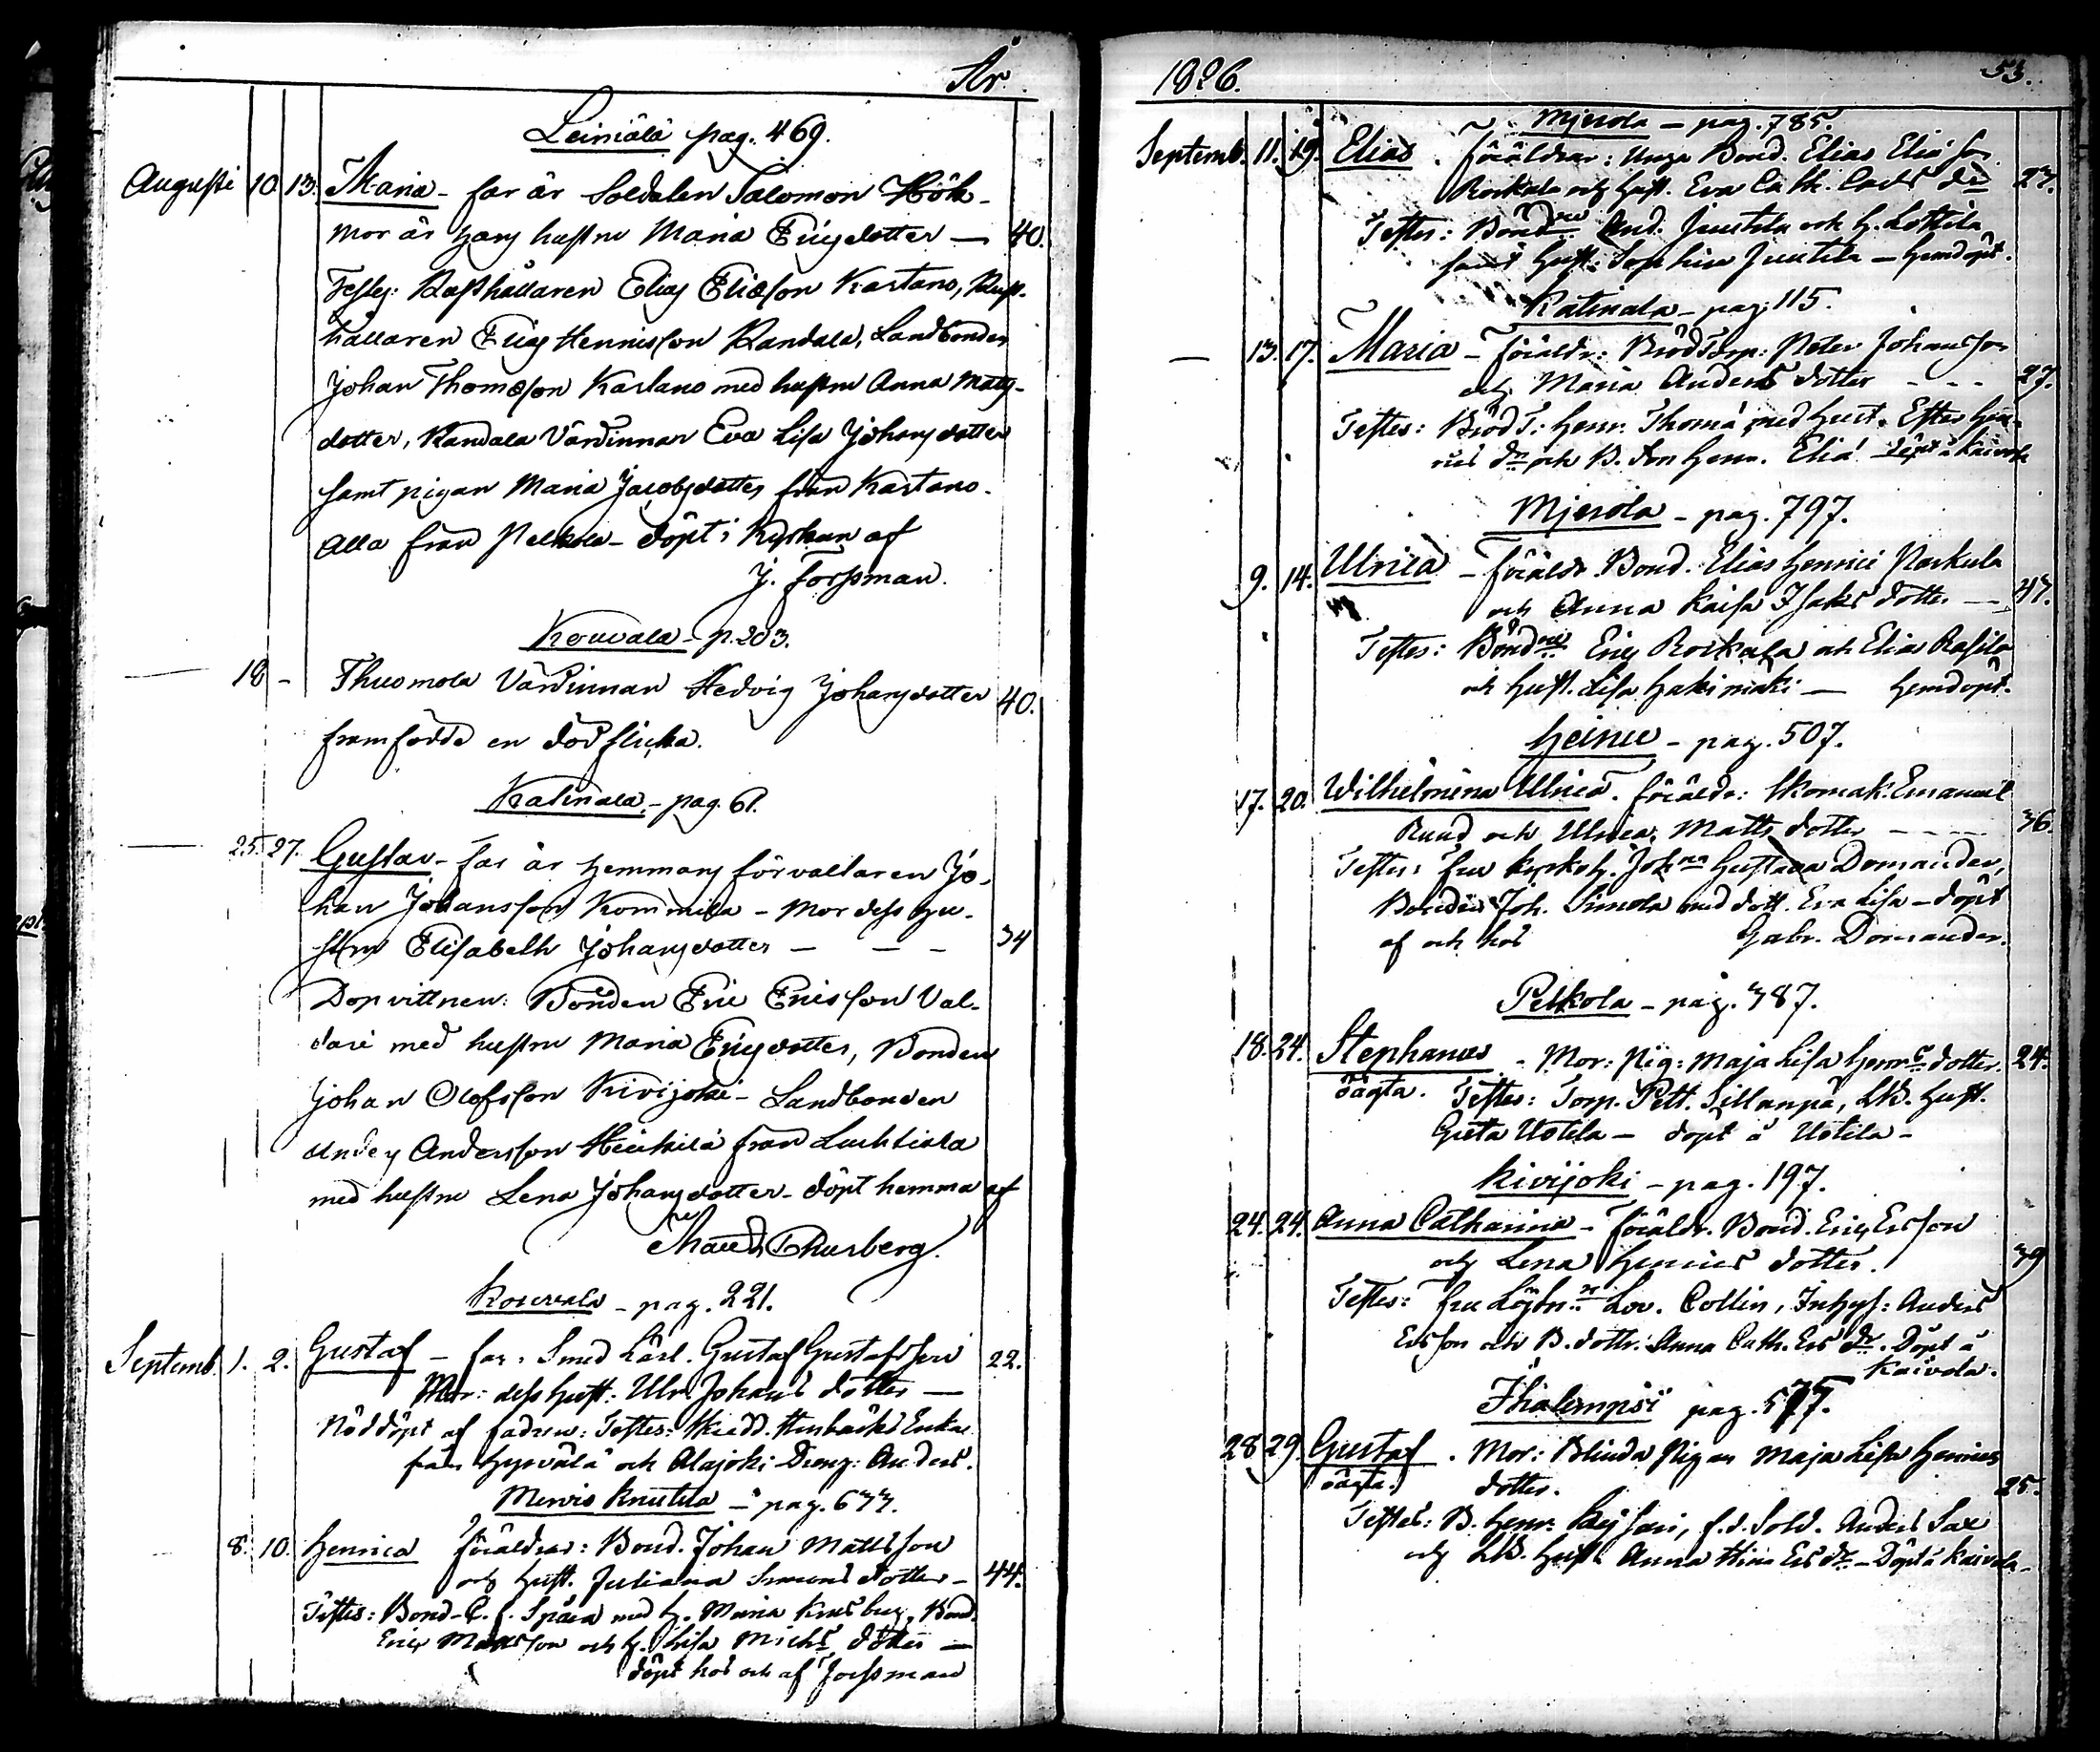 År
Leiniälä pag. 469.
Augusti 10. 13. Maria – far är Soldaten Salomon Höök –
mor är hans hustru Maria Ericsdotter — 40.
Testes: Rusthållaren Elias Eliæsson Kartano, Rust-
hållaren Eric Hennisson Kandala, Landbonden
Johan Thomæson Kartano med hustru Anna Mats-
dotter, Kandala Värdinnan Eva Lisa Johansdotter
samt pigan Maria Jacobsdotter från Kartano.
Alla från Pelkola – döpt i Kyrkan af
J. Forssman.
Kouvala – p. 203.
18 – Thuomola Värdinnan Hedvig Johansdotter 40.
framfödde en död flicka.
Katinala – pag. 61.
25. 27. Gustav – far är Hemmans förvaltaren Jo-
han Johansson Kommila – Mor dess hu-
stru Elisabeth Johansdotter — — – 34
Dopvittnen: Bonden Eric Ericsson Val-
dari med hustru Maria Ericsdotter, Bonden
Johan Olofsson Kivijoki – Landbonden
Anders Andersson Heikkilä från Luhtiala
med hustru Lena Johansdotter – döpt hemma af
Thusberg.
Kouvala – pag. 221.
Septemb. 1. 2. Gustaf – far: Smed Lärl. Gustaf Gustafsson 22.
Mor: dess hust: Ulr. Johans dotter —
Nöddöpt af fadren: Testes: Skrädd. Stenbäcks Enka
från Hyrvälä och Alajoki Dreng: Anders.
Mervis Knutila – pag. 677.
8. 10. Henrica föräldrar: Bond. Johan Mattsson
och hust. Juliana Simons dotter – 44.
Testes: Bond. C. f. Spåra med h. Maria Knesberg, Bond.
Eric Mattsson och h. Lisa Michs dotter —
döpt hos och af Forssman
1826. 53.
Mjerola – pag. 785.
Septemb. 11. 19. Elias. föräldrar: Unga Bond. Elias Elias son
Rockala och hust. Eva Cath. Carls dr 27.
Testes: Bönd. And. Juutila och H. Lottila
samt hust: Sophia Juutila – hemdöpt.
Katinala – pag. 115.
— 13. 17. Maria – föräldr: Bröd Torp: Peter Johansson
och Maria Anders dotter - - - 27.
Testes: Bröd T: Henr. Thomä med hust. Ester Hen-
rics dr och B. Son Henr. Eliä döpt å Kaivola
Mjerola – pag. 797.
9. 14. Ulrica – föräldr. Bond. Elias Henrici Parkula
och Anna Kaisa Isaks dotter — 47.
Testes: Bönd. Eric Rockala och Elias Rasila
och hust. Lisa Hakimäki — hemdöpt.
Heinu – pag. 507.
17. 20. Wilhelmina Ulrica. föräldr: Skomak: Emanuel
Rund och Ulrica Matts dotter - - - 36.
Testes: Fru Kyrkoh. Joh.na Gustava Domander,
Bonden Joh. Simola med dott. Eva Lisa – döpt
af och hos Gabr. Domander.
Pelkola – pag. 387.
18. 24. Stephanus – Mor: Pig: Maja Lisa Henrs dotter. 24.
oägta. Testes: Torp. Pett. Sillanpä, LB. hust.
Greta Uotila – döpt å Uotila –
Kivijoki – pag. 197.
24. 24. Anna Catharina – föräldr. Bond. Eric Ersson
och Lena Henrics dotter. 39
Testes: Fru Löjtn. Lov. Collin, Inhys: Anders
Ersson och B. dottr: Anna Cath. Ers dr. Döpt å
Kaivola.
Ihalempsi pag. 577.
28 29. Gustaf. Mor: Blinda Pigan Maja Lisa Henrics
oägta. dotter. 25.
Testes: B. Henr. , f. d. Sold. Anders Sax
och LB. hust: Anna Stina Ers dr – Döpt å Kaivola –